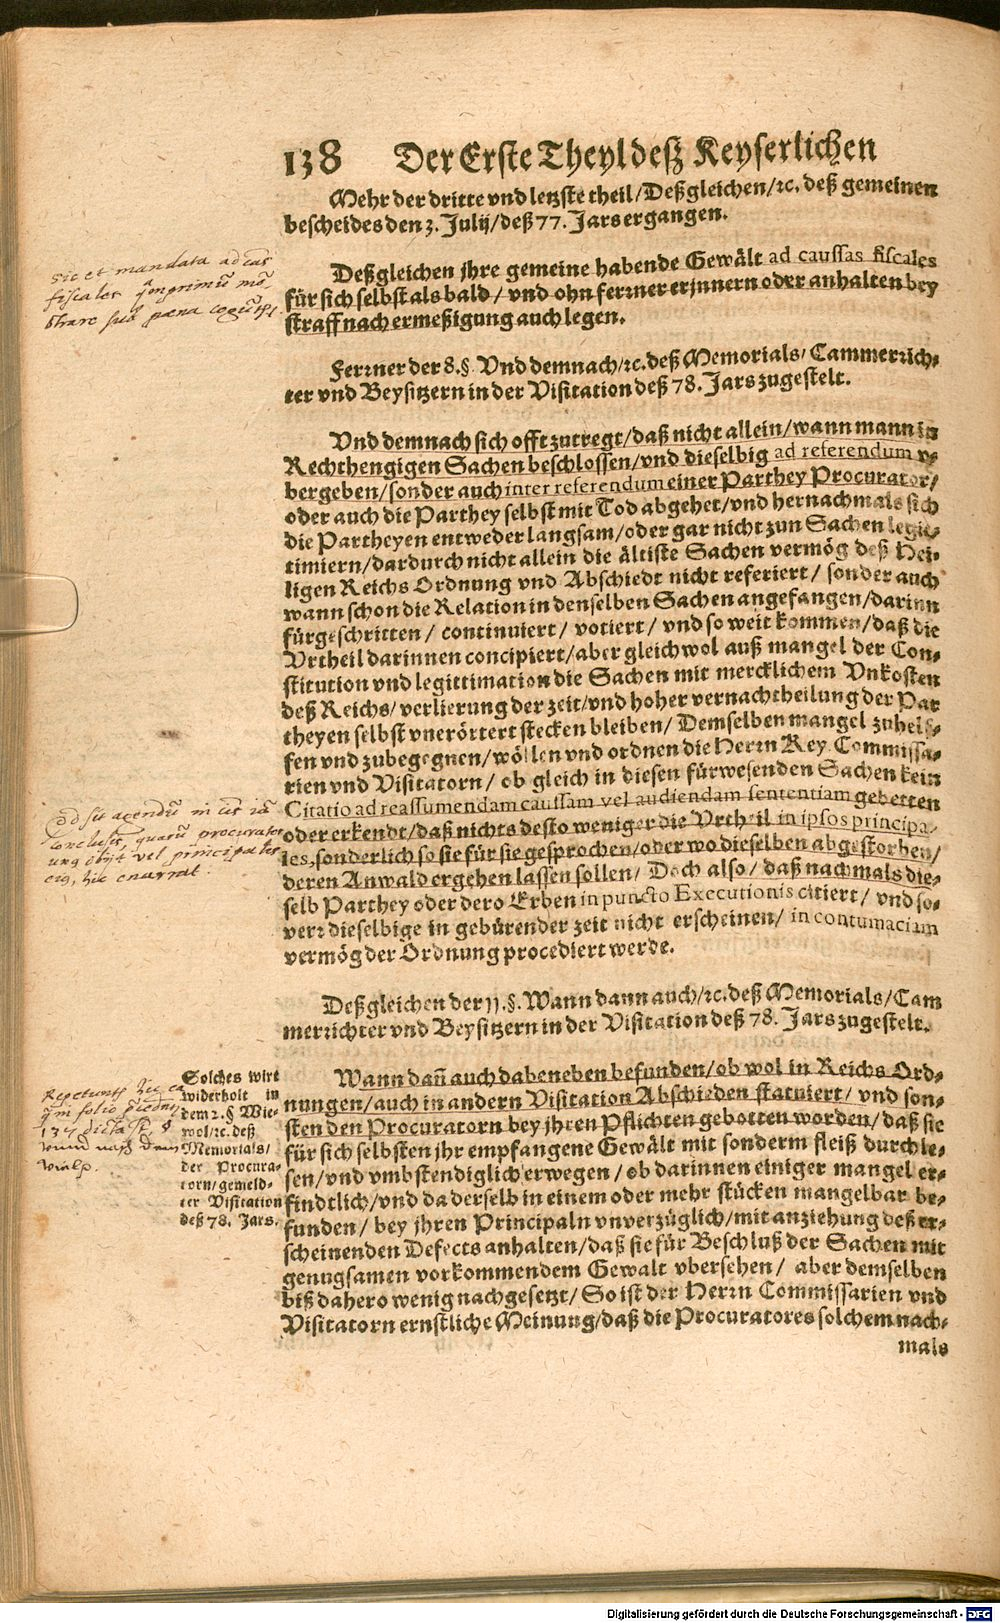 138 Der Erste Theyl deß Keyserlichen
Mehr der dritte vnd letzste theil/ Deßgleichen/ ꝛc. deß gemeinen
bescheides den 3. Julij/ deß 77. Jars ergangen.
Sic et mandata ad cās
fiscales
sub pœna
Deßgleichen jhre gemeine habende Gewält ad caussas fiscales
für sich selbst als bald/ vnd ohn ferrner erjnnern oder anhalten bey
straff nach ermeßigung auch legen.
Ferrner der 8. §. Vnd demnach/ ꝛc. deß Memorials/ Cammerrich-
ter vnd Beysitzern in der Visitation deß 78. Jars zugestelt.
Vnd demnach sich offt zutregt/ daß nicht allein/ wann mann in
Rechthengigen Sachen beschlossen/ vnd dieselbig ad referendum v-
bergeben/ sonder auch inter referendum einer Parthey Procurator/
oder auch die Parthey selbst mit Tod abgehet/ vnd hernachmals sich
die Partheyen entweder langsam/ oder gar nicht zun Sachen legit-
timiern/ dardurch nicht allein die ältiste Sachen vermög deß Hei-
ligen Reichs Ordnung vnd Abschiedt nicht referiert/ sonder auch
wann schon die Relation in denselben Sachen angefangen/ darinn
fürgeschritten/ continuiert/ votiert/ vnd so weit kommen/ daß die
Vrtheil darinnen concipiert/ aber gleichwol auß mangel der Con-
stitution vnd legittimation die Sachen mit mercklichem Vnkosten
deß Reichs/ verlierung der zeit/ vnd hoher vernachtheilung der Par
theyen selbst vnerörtert stecken bleiben/ Demselben mangel zuhelf-
fen vnd zubegegnen/ wöllen vnd ordnen die Herrn Key. Commissa-
rien vnd Visitatorn/ ob gleich in diesen fürwesenden Sachen kein
Citatio ad reassumendam caussam vel audiendam sententiam gebetten
oder erkendt/ daß nichts desto weniger die Vrtheil in ipsos principa-
les, sonderlich so sie für sie gesprochen/ oder wo dieselben abgestorben/
deren Anwald ergehen lassen sollen/ Doch also/ daß nachmals die-
selb Parthey oder dero Erben in puncto Executionis citiert/ vnd so-
verr dieselbige in gebürender zeit nicht erscheinen/ in contumaciam
vermög der Ordnung procediert werde.
Qd sit agendū in cās iā
conclusis, quarū procurator
obijt vel principales
hic enarrat.
Deßgleichen der 11. §. Wann dann auch/ ꝛc. deß Memorials/ Cam
merrichter vnd Beysitzern in der Visitation deß 78. Jars zugestelt.
folio
137 dicta
Solches wirt
widerholt in
dem 2. § Wie-
wol/ ꝛc. deß
Memorials/
der Procura-
torn/ gemeld-
ter Visitation
deß 78. Jars.
Wann dañ auch dabeneben befunden/ ob wol in Reichs Ord-
nungen/ auch in andern Visitation Abschieden statuiert/ vnd son-
sten den Procuratorn bey jhren Pflichten gebotten worden/ daß sie
für sich selbsten jhr empfangene Gewält mit sonderm fleiß durchle-
sen/ vnd vmbstendiglich erwegen/ ob darinnen einiger mangel er-
findtlich/ vnd da derselb in einem oder mehr stücken mangelbar be-
funden/ bey jhren Principaln vnverzüglich/ mit anziehung deß er-
scheinenden Defects anhalten/ daß sie für Beschluß der Sachen mit
genugsamen vorkommendem Gewalt vbersehen/ aber demselben
biß dahero wenig nachgesetzt/ So ist der Herrn Commissarien vnd
Visitatorn ernstliche Meinung/ daß die Procuratores solchem nach-
mals
Digitalisierung gefördert durch die Deutsche Forschungsgemeinschaft - DFG